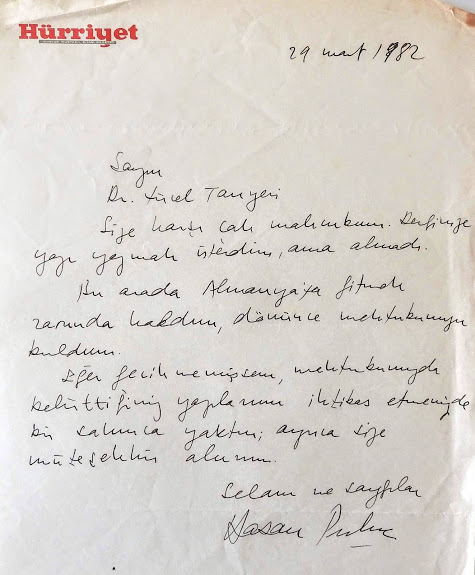 Hürriyet
29 mart 1982
Sayın
Dr. Yücel Tanyeri
Size karşı çok mahcubum. Derginize
yazı yazmak isterdim, ama olmadı.
Bu arada Almanya'ya gitmek
zorunda kaldım, dönünce mektubunuzu
buldum.
Eğer gecikmemişsem, mektubunuzda
belirttiğiniz yazılarımı iktibas etmenizde
bir sakınca yoktur; ayrıca size
müteşekkir olurum.
Selam ve saygılar
Hasan Pulur